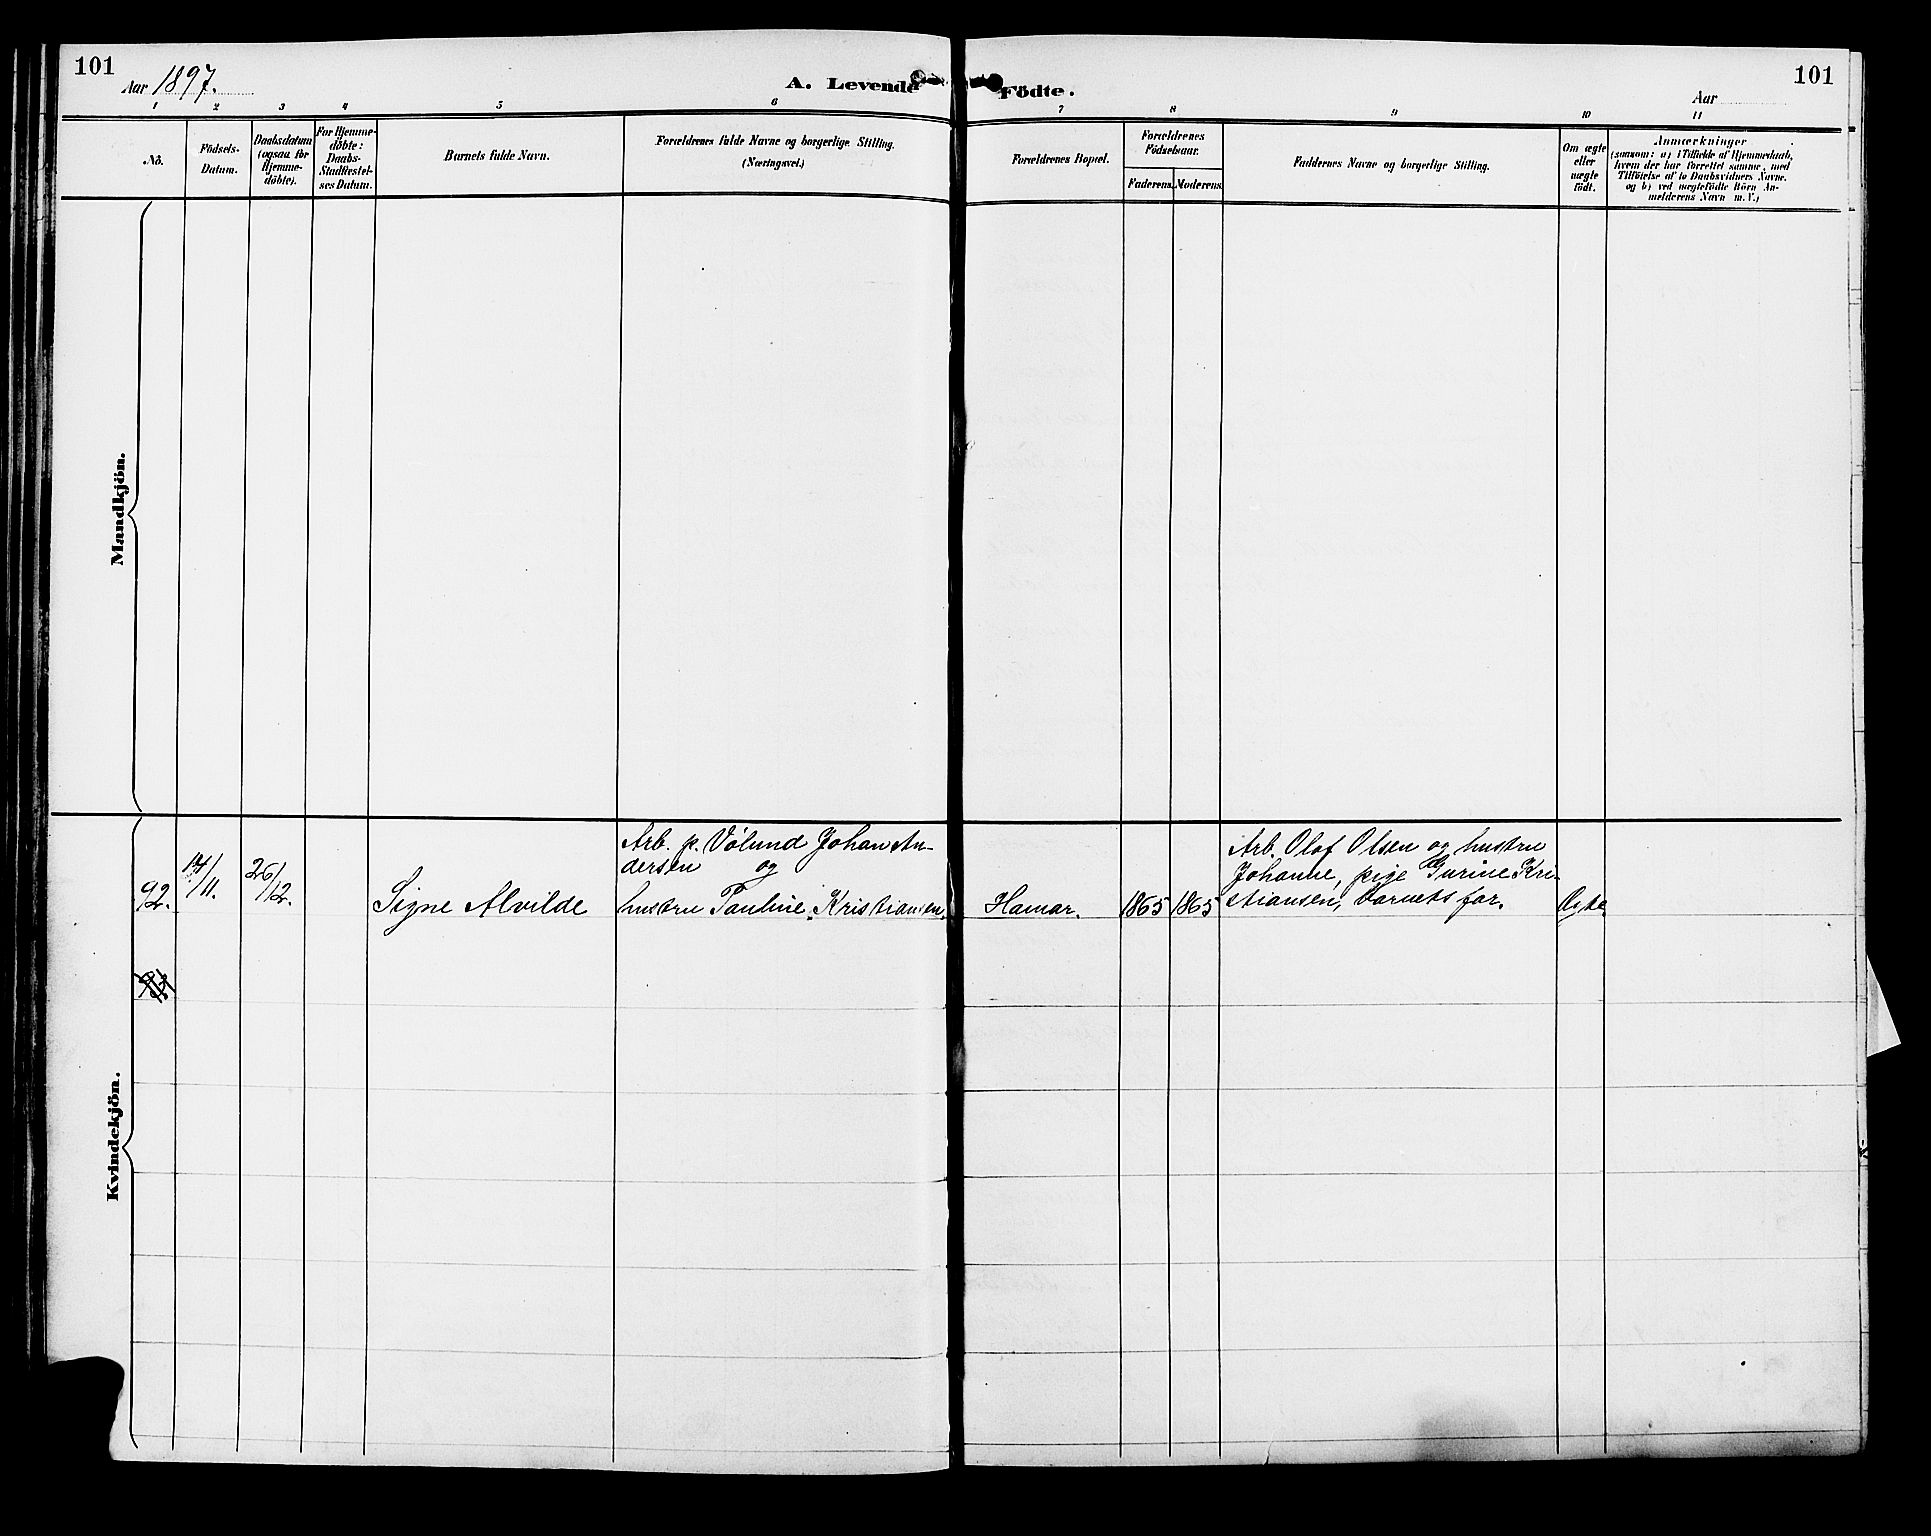 101
Aar 1897.
A. Levende Födte.
101
Aar
1 2 3 4 5 6 7 8 9 10 11
No.
Födsels-
Datum.
Daabsdatum
(ogsaa for
Hjemme-
döbte).
For Hjemme-
döbte:
Daabs-
Stadfæstel-
ses Datum.
Barnets fulde Navn.
Forældrenes fulde Navne og borgerlige Stilling.
(Næringsvei.)
Forældrenes Bopæl.
Forældrenes
Födselsaar.
Faderens. Moderens.
Faddernes Navne og borgerlige Stilling.
Om ægte
eller
uægte
födt.
Anmærkninger
(saasom: a) i Tilfælde af Hjemmedaab,
hvem der har forrettet samme, med
Tilföielse af to Daabsvidners Navne,
og b) ved uægtefödte Börn An-
melderens Navn m. V.)
Mandkjön.
Kvindekjön.
92.
14/11.
26/12.
Signe Alvilde
Arb. p. Vølund Johan An-
dersen og
hustru Pauline Kristiansen,
Hamar.
1865
1865
Arb. Olof Olsen og hustru
Johanne, pige Gurine Kri-
stiansen, barnets far.
Ægte